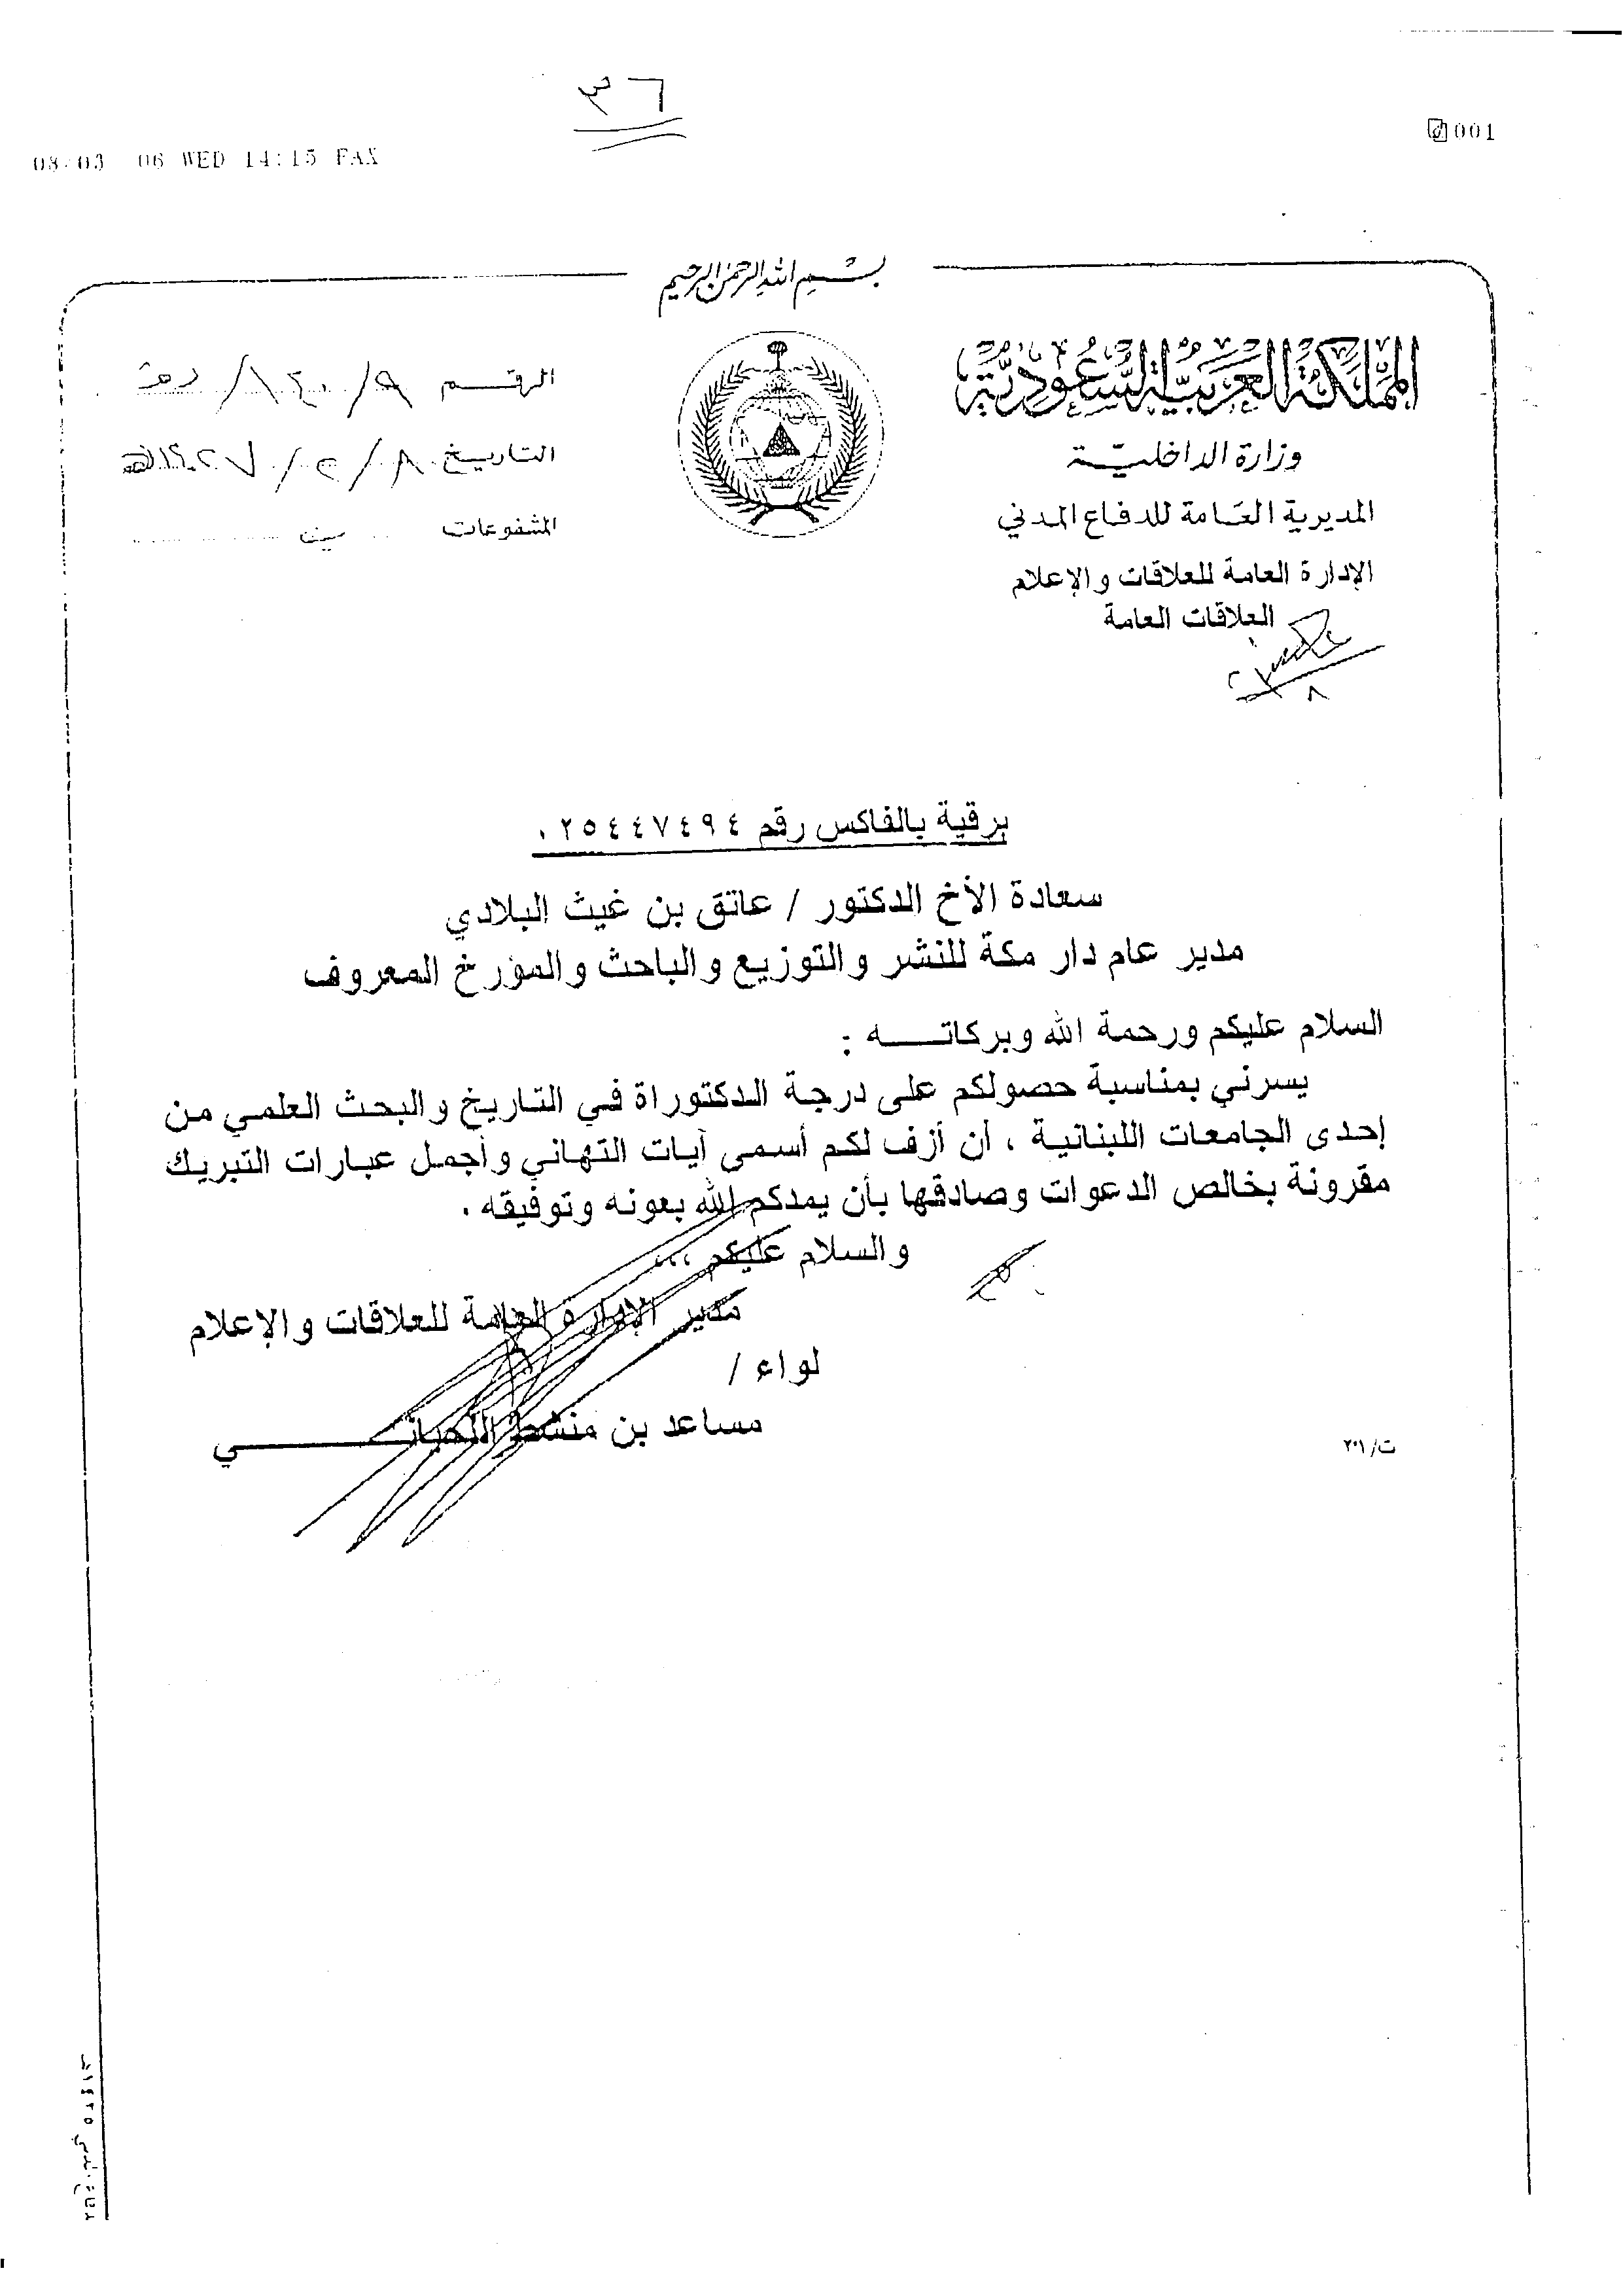 ٣٦
001
08/03 06 WED 14:15 FAX
بسم الله الرحمن الرحيم
المملكة العربية السعودية
وزارة الداخلية
المديرية العامة للدفاع المدني
الإدارة العامة للعلاقات والإعلام
العلاقات العامة
الرقم
التاريخ ٨/٢/١٤٢٧هـ
المشفوعات
برقية بالفاكس رقم ٠٢٥٤٤٧٤٩٤
سعادة الأخ الدكتور / عاتق بن غيث البلادي
مدير عام دار مكة للنشر والتوزيع والباحث والمؤرخ المعروف
السلام عليكم ورحمة الله وبركاتـــه :
يسرني بمناسبة حصولكم على درجة الدكتوراة في التاريخ والبحث العلمي من
إحدى الجامعات اللبنانية ، أن أزف لكم أسمى آيات التهاني وأجمل عبارات التبريك
مقرونة بخالص الدعوات وصادقها بأن يمدكم الله بعونه وتوفيقه .
والسلام عليكم ،،،
مدير الإدارة العامة للعلاقات والإعلام
لواء /
مساعد بن منشط اللحيانـــــي
ت/٢٠١